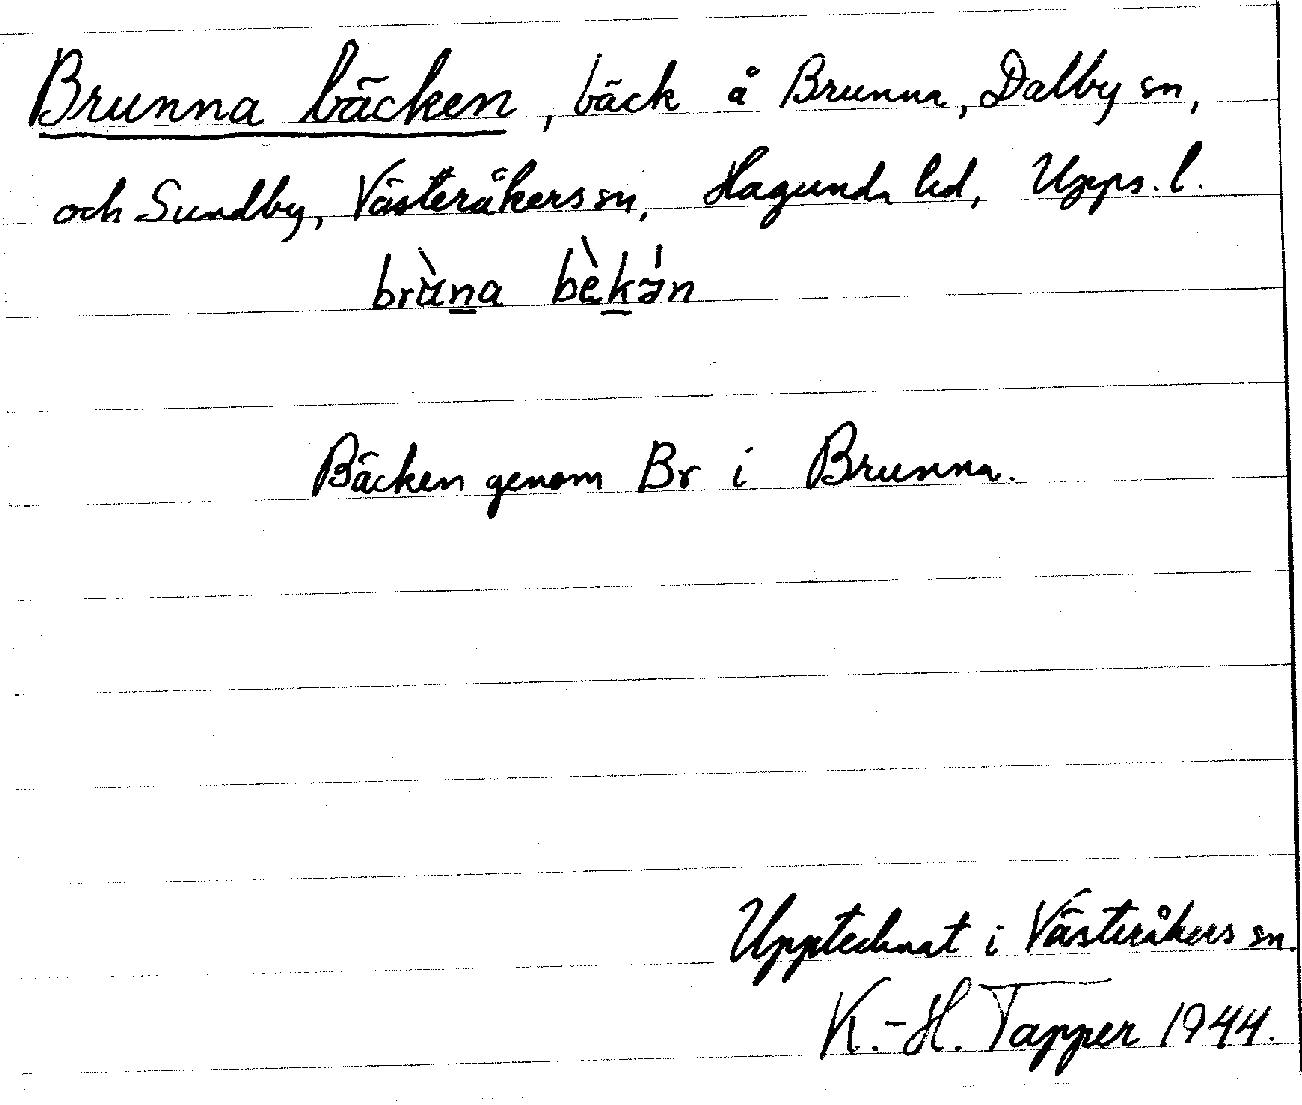 Brunna bäcken, bäck å Brunna, Dalby sn,
och Sundby, Västeråkers sn, Hagunda hd, Upps. l.
brùna bèkə́n
Bäcken genom Br i Brunna.
Upptecknat i Västeråkers sn.
K.-H. Tapper 1944.